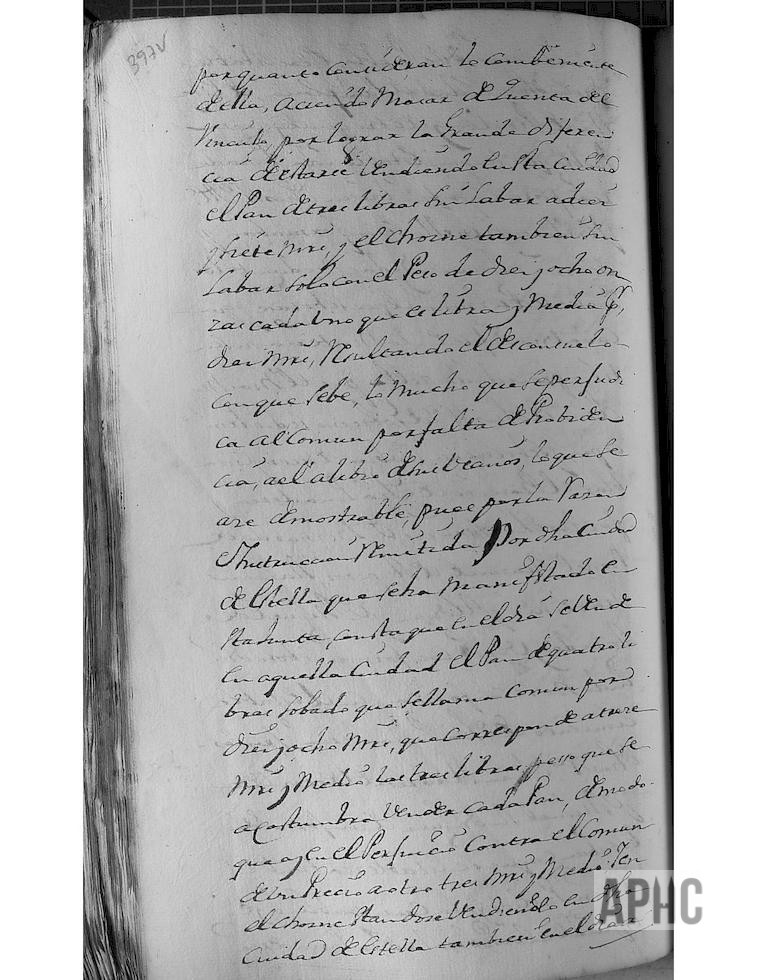 397v
por quanto consideran lo combeniente
della, aciendo Masar de Quenta del
Vinculo, por lograr la Grande diferen
cia de Vendiendo en sta Ciudad
el Pan de tres libras sin Sabar a diez
y siete mrs, y el choine tambien sin
Sabar solo con el Peso de diez y ocho on
zas cada Uno que es libra y Media Pr
diez mrs, Resultando el desconsuelo
con que sebe, lo Mucho que se perjudi
ca al Comun por falta de Probiden
cia, a el alibio de sus Vecinos, lo que se
aze demostrable, pues por la Razon
e Instruccion Remitida Por dha Ciudad
de Estella que se ha Manifestado en
sta Junta, consta que en el dia se Vende
en aquella Ciudad el Pan de quatro li
bras sobado que se llama Comun por
diez y ocho Mrs, que corresponde a treze
mrs y Medio las tres libras peso que se
acostumbra Vender cada Pan, de modo
que ay en el Perjuicio Contra el Comun
de un Precio a otro tres mrs y Medio. Y en
el choine standose Vendiendo en dha
Ciudad de Estella tambien en el dia
APHC